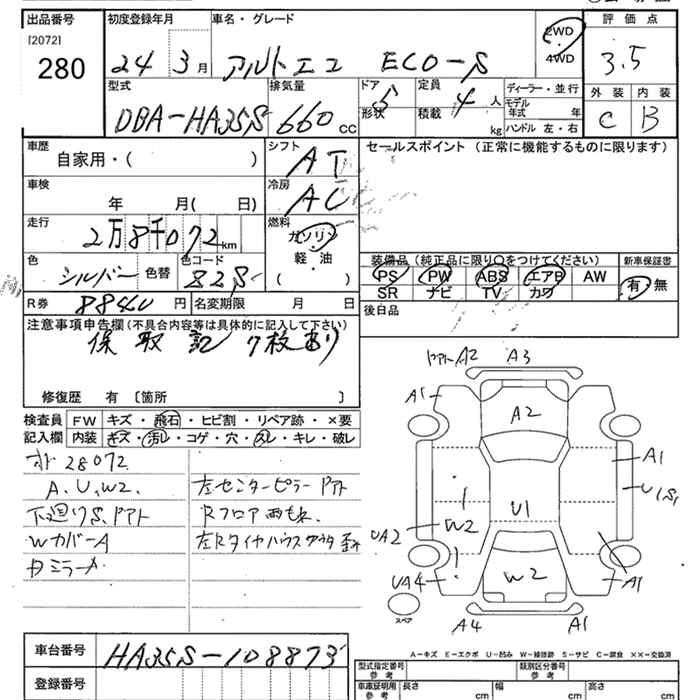 出品番号 初度登録年月 車名・グレード 2WD 評価点
[2072]
280 24 3月 アルトエコ ECO-S 4WD 3.5
型式 排気量 ドア 定員 ディーラー・並行 外装 内装
DBA-HA35S 660 CC 5 4人 モデル年式 年 C B
形状 積載 kg ハンドル 左・右
車歴 シフト セールスポイント (正常に機能するものに限ります)
自家用・( ) AT
車検 冷房
年 月( 日) AC
走行 燃料
2万8千072km ガソリン
軽・油
装備品 (純正品に限り○をつけてください) 新車保証書
色 色替 色コード ( ) PS PW ABS エアB AW 有・無
シルバー 82S SR ナビ TV カワ
R券 8840円 名変期限 月 日 後日品
注意事項申告欄 (不具合内容等は具体的に記入して下さい)
保 取 記 7枚あり
修復歴 有 〔箇所 〕
検査員 FW キズ・飛石・ヒビ割・リペア跡・×要
記入欄 内装 キズ・汚レ・コゲ・穴・スレ・キレ・破レ
28072
A、U、W2、 左センターピラー
下廻りS、
WカバーA
ミラー
A2 A3
A1
A2
A1
U1S1
U1
W2
UA2
UA4
A1
W2
スペア
A4 A1
A-キズ E-エクボ U-凹み W-補修跡 S-サビ C-腐食 ××-交換済
車台番号 HA35S-108873 型式指定番号 参考 類別区分番号 参考
登録番号 車庫証明用 参考 長さ cm 幅 cm 高さ cm